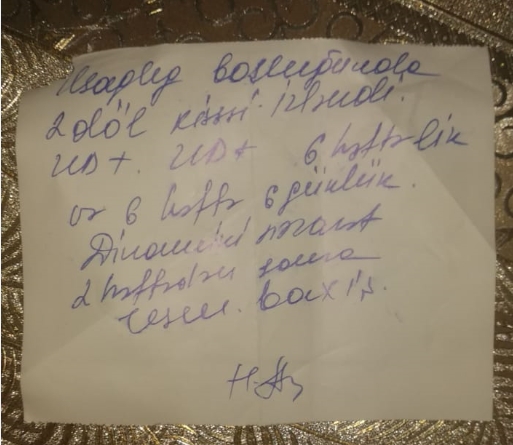 Uşaqlıq boşluğunda
2 döl kisəsi izləndi.
ÜD+. ÜD+ 6 həftəlik
və 6 həftə 6 günlük.
Dinamiki nəzarət
2 həftədən sonra
baxış.